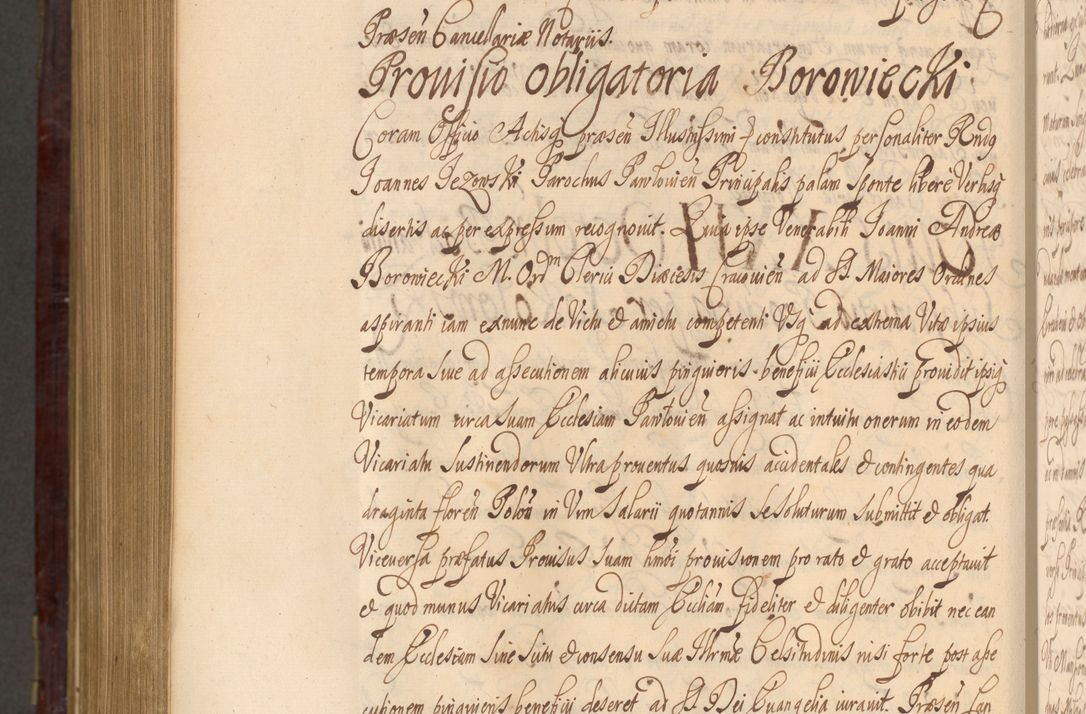 Præsen̄ Cancellariæ Notariis.
Prouisio obligatoria Borowiecki
Coram Officio Actisq̨ præsen̄ Illustrissimi constitutus personaliter Rndg
Joannes Jezowski Parochus Pawlowien̄ Principalis palam sponte libere Verbisq̨
disertis ac per expressum recognouit. Quia ipse Venerabili Joanni Andreæ
Borowiecki M. Ordm Clerico Diæcesis Cracovien̄ ad SS. Maiores Ordines
aspiranti iam exnunc de Victu & amictu competenti Vsq̨ ad extrema Vitæ ipsius
tempora siue ad assecutionem alicuius pinguieris beneficii Ecclesiastici prouidit ipsiq̨
Vicariatum circa suam Ecclesiam Pawlowien̄ assignat ac intuitu onerum in eodem
Vicariatu sustinendorum Vltra prouentus quosuis accidentales & contingentes qua
draginta floren̄ Polōn in Vim Salarii quotannis se soluturum submittit & obligat.
Viceuersa præfatus Prouisus suam hm̄oi prouisionem pro rato & grato acceptauit
& quod munus Vicariatus circa dictam Eccliam fideliter & diligenter obibit nec ean
dem Ecclesiam sine scitu & consensu suæ Illrmæ Celsitudinis nisi forte post asse
cutionem pinguieris beneficii deseret ad SS Dei Euangelia iurauit. Præsen̄ Lau